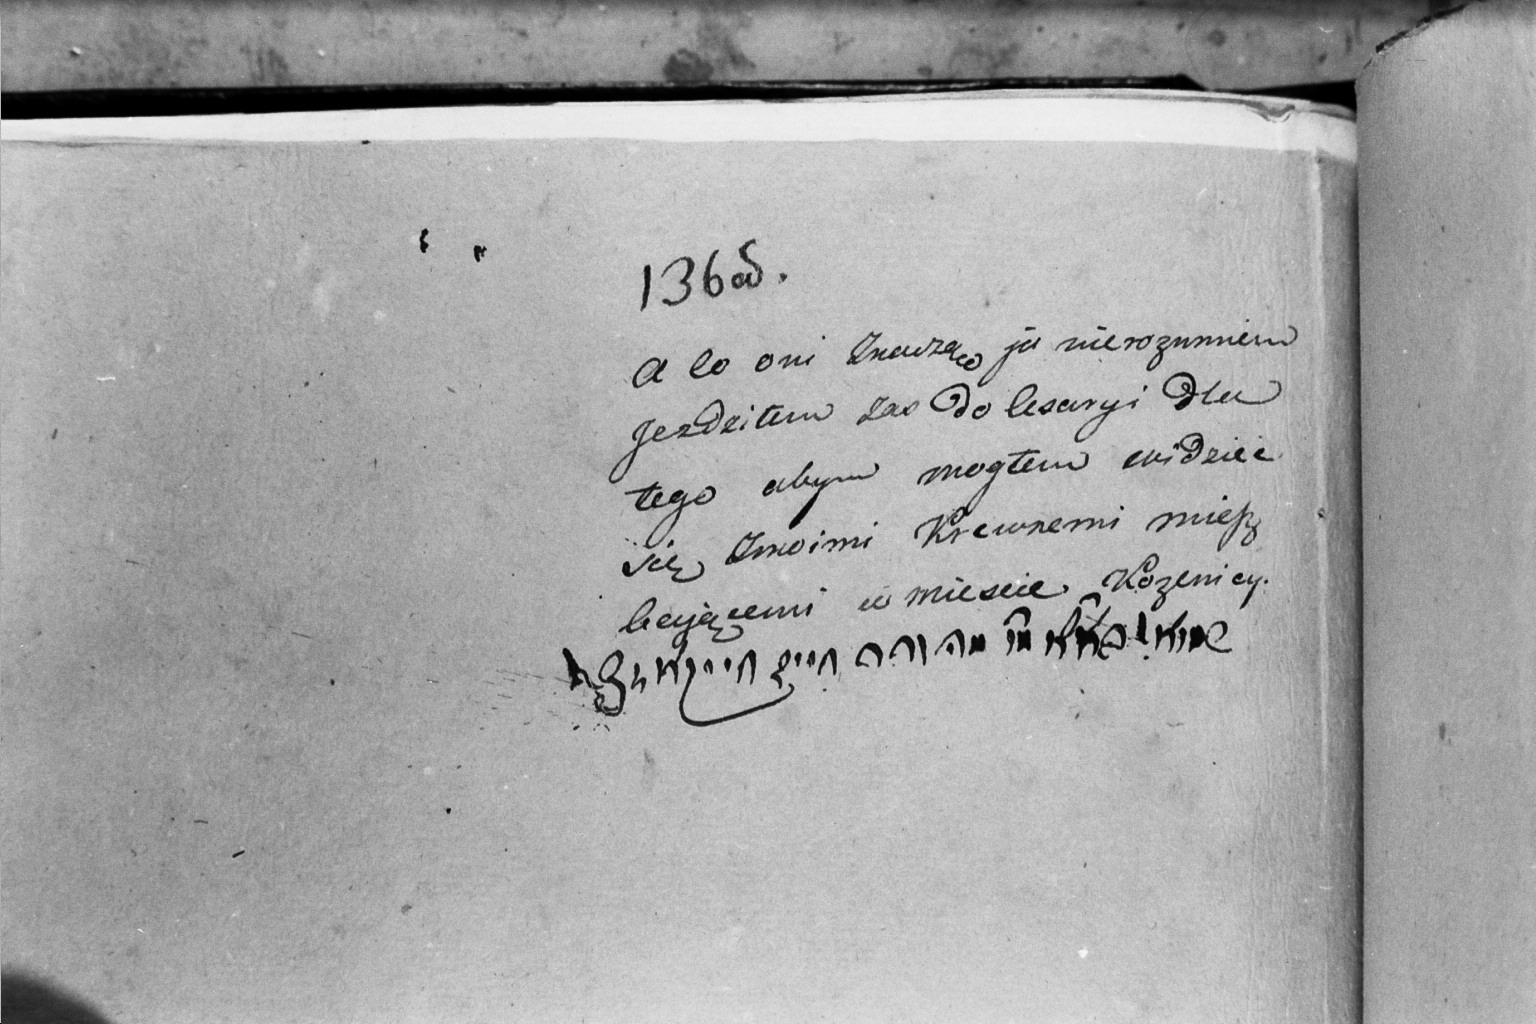 136 ad.
A co oni znaczą co ja nierozumiem
Jezdziłem zas do Cesaryi dla
tego abym mogłem widzieć
się zmoimi Krewnemi miesz
kającemi w mieście Kozenicy.